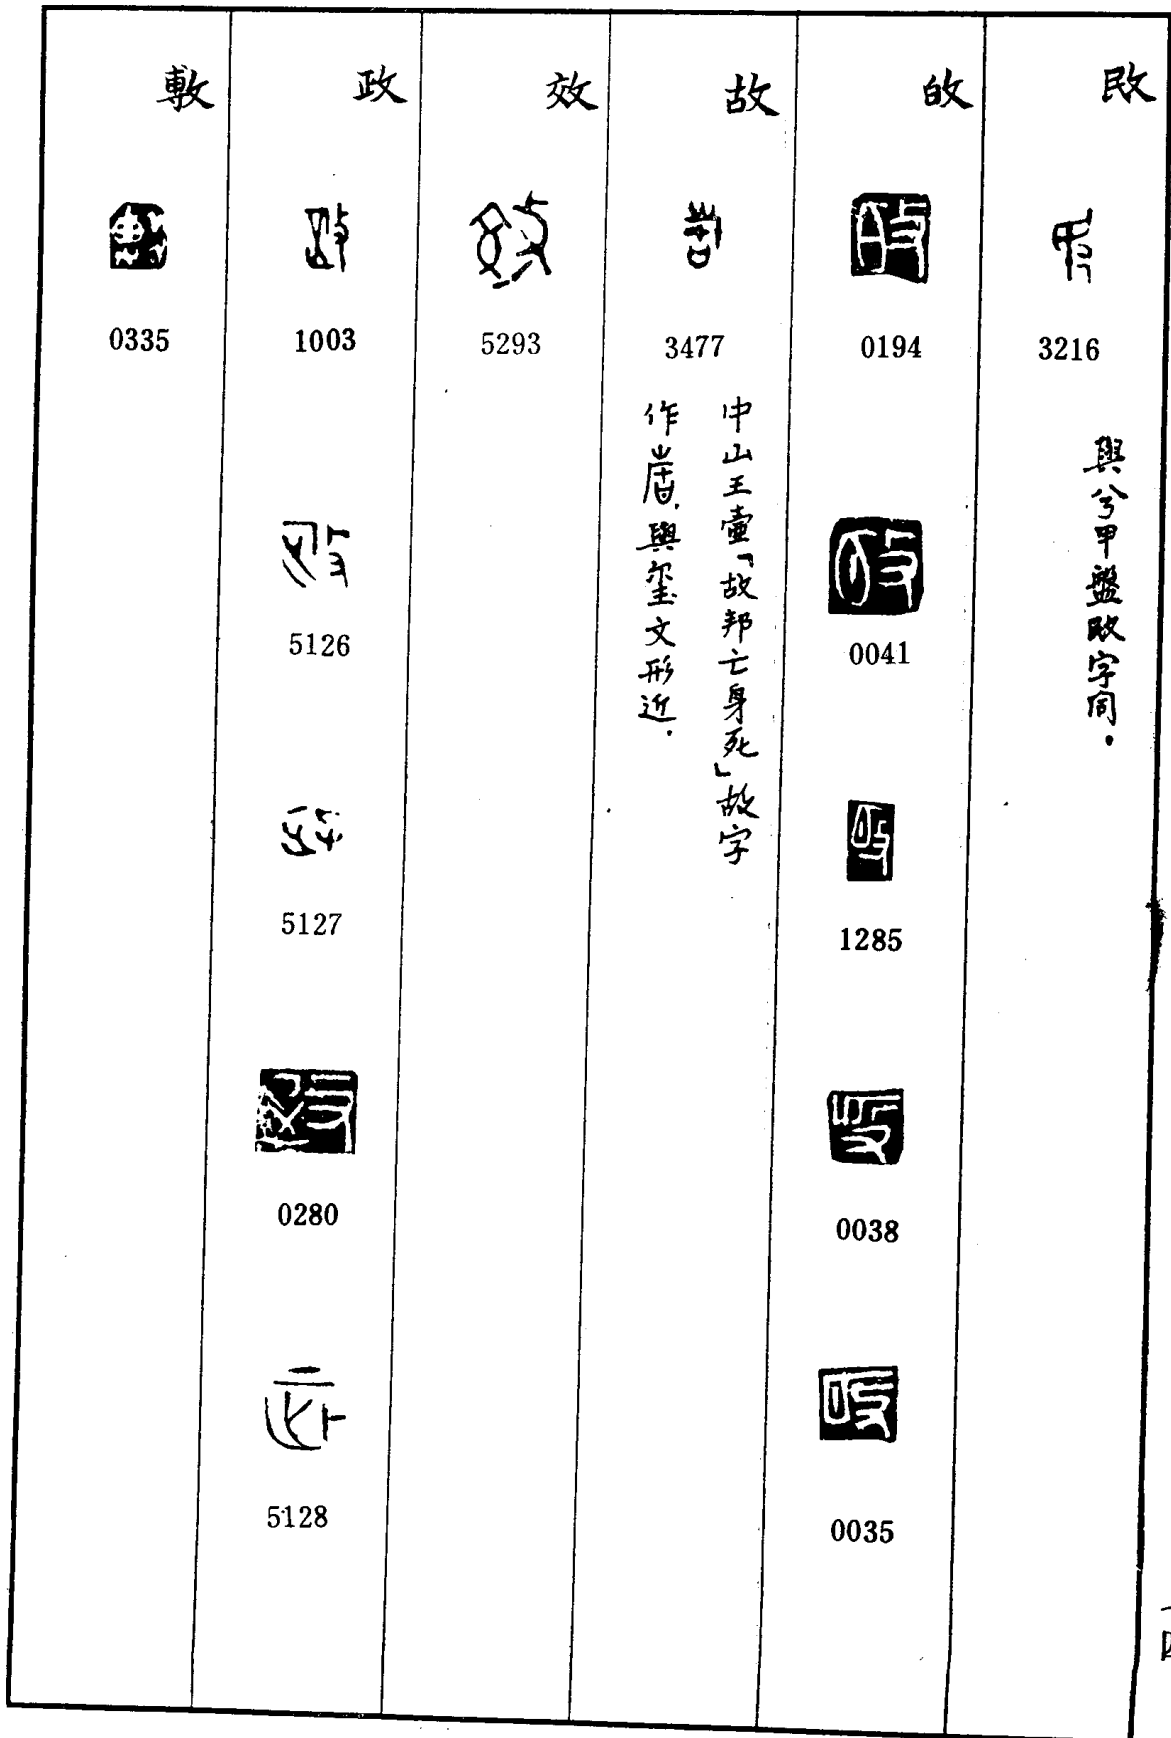 敃
3216
與兮甲盤敃字同.
敀
0194
0041
1285
0038
0035
故
3477
中山王壺「故邦亡身死」故字
作 , 與玺文形近.
效
5293
政
1003
5126
5127
0280
5128
0335